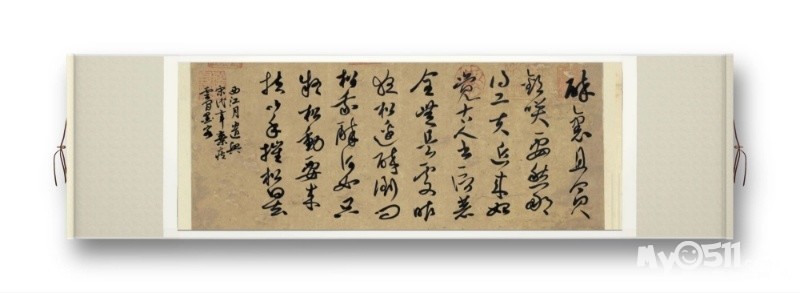 醉裏且貪
歡笑要愁那
得工夫近来始
覺古人書信著
全無是處昨
夜松邊醉倒问
松我醉何如只
疑松動要来
扶以手推松曰去
西江月遣興
宋代辛棄疾
My0511